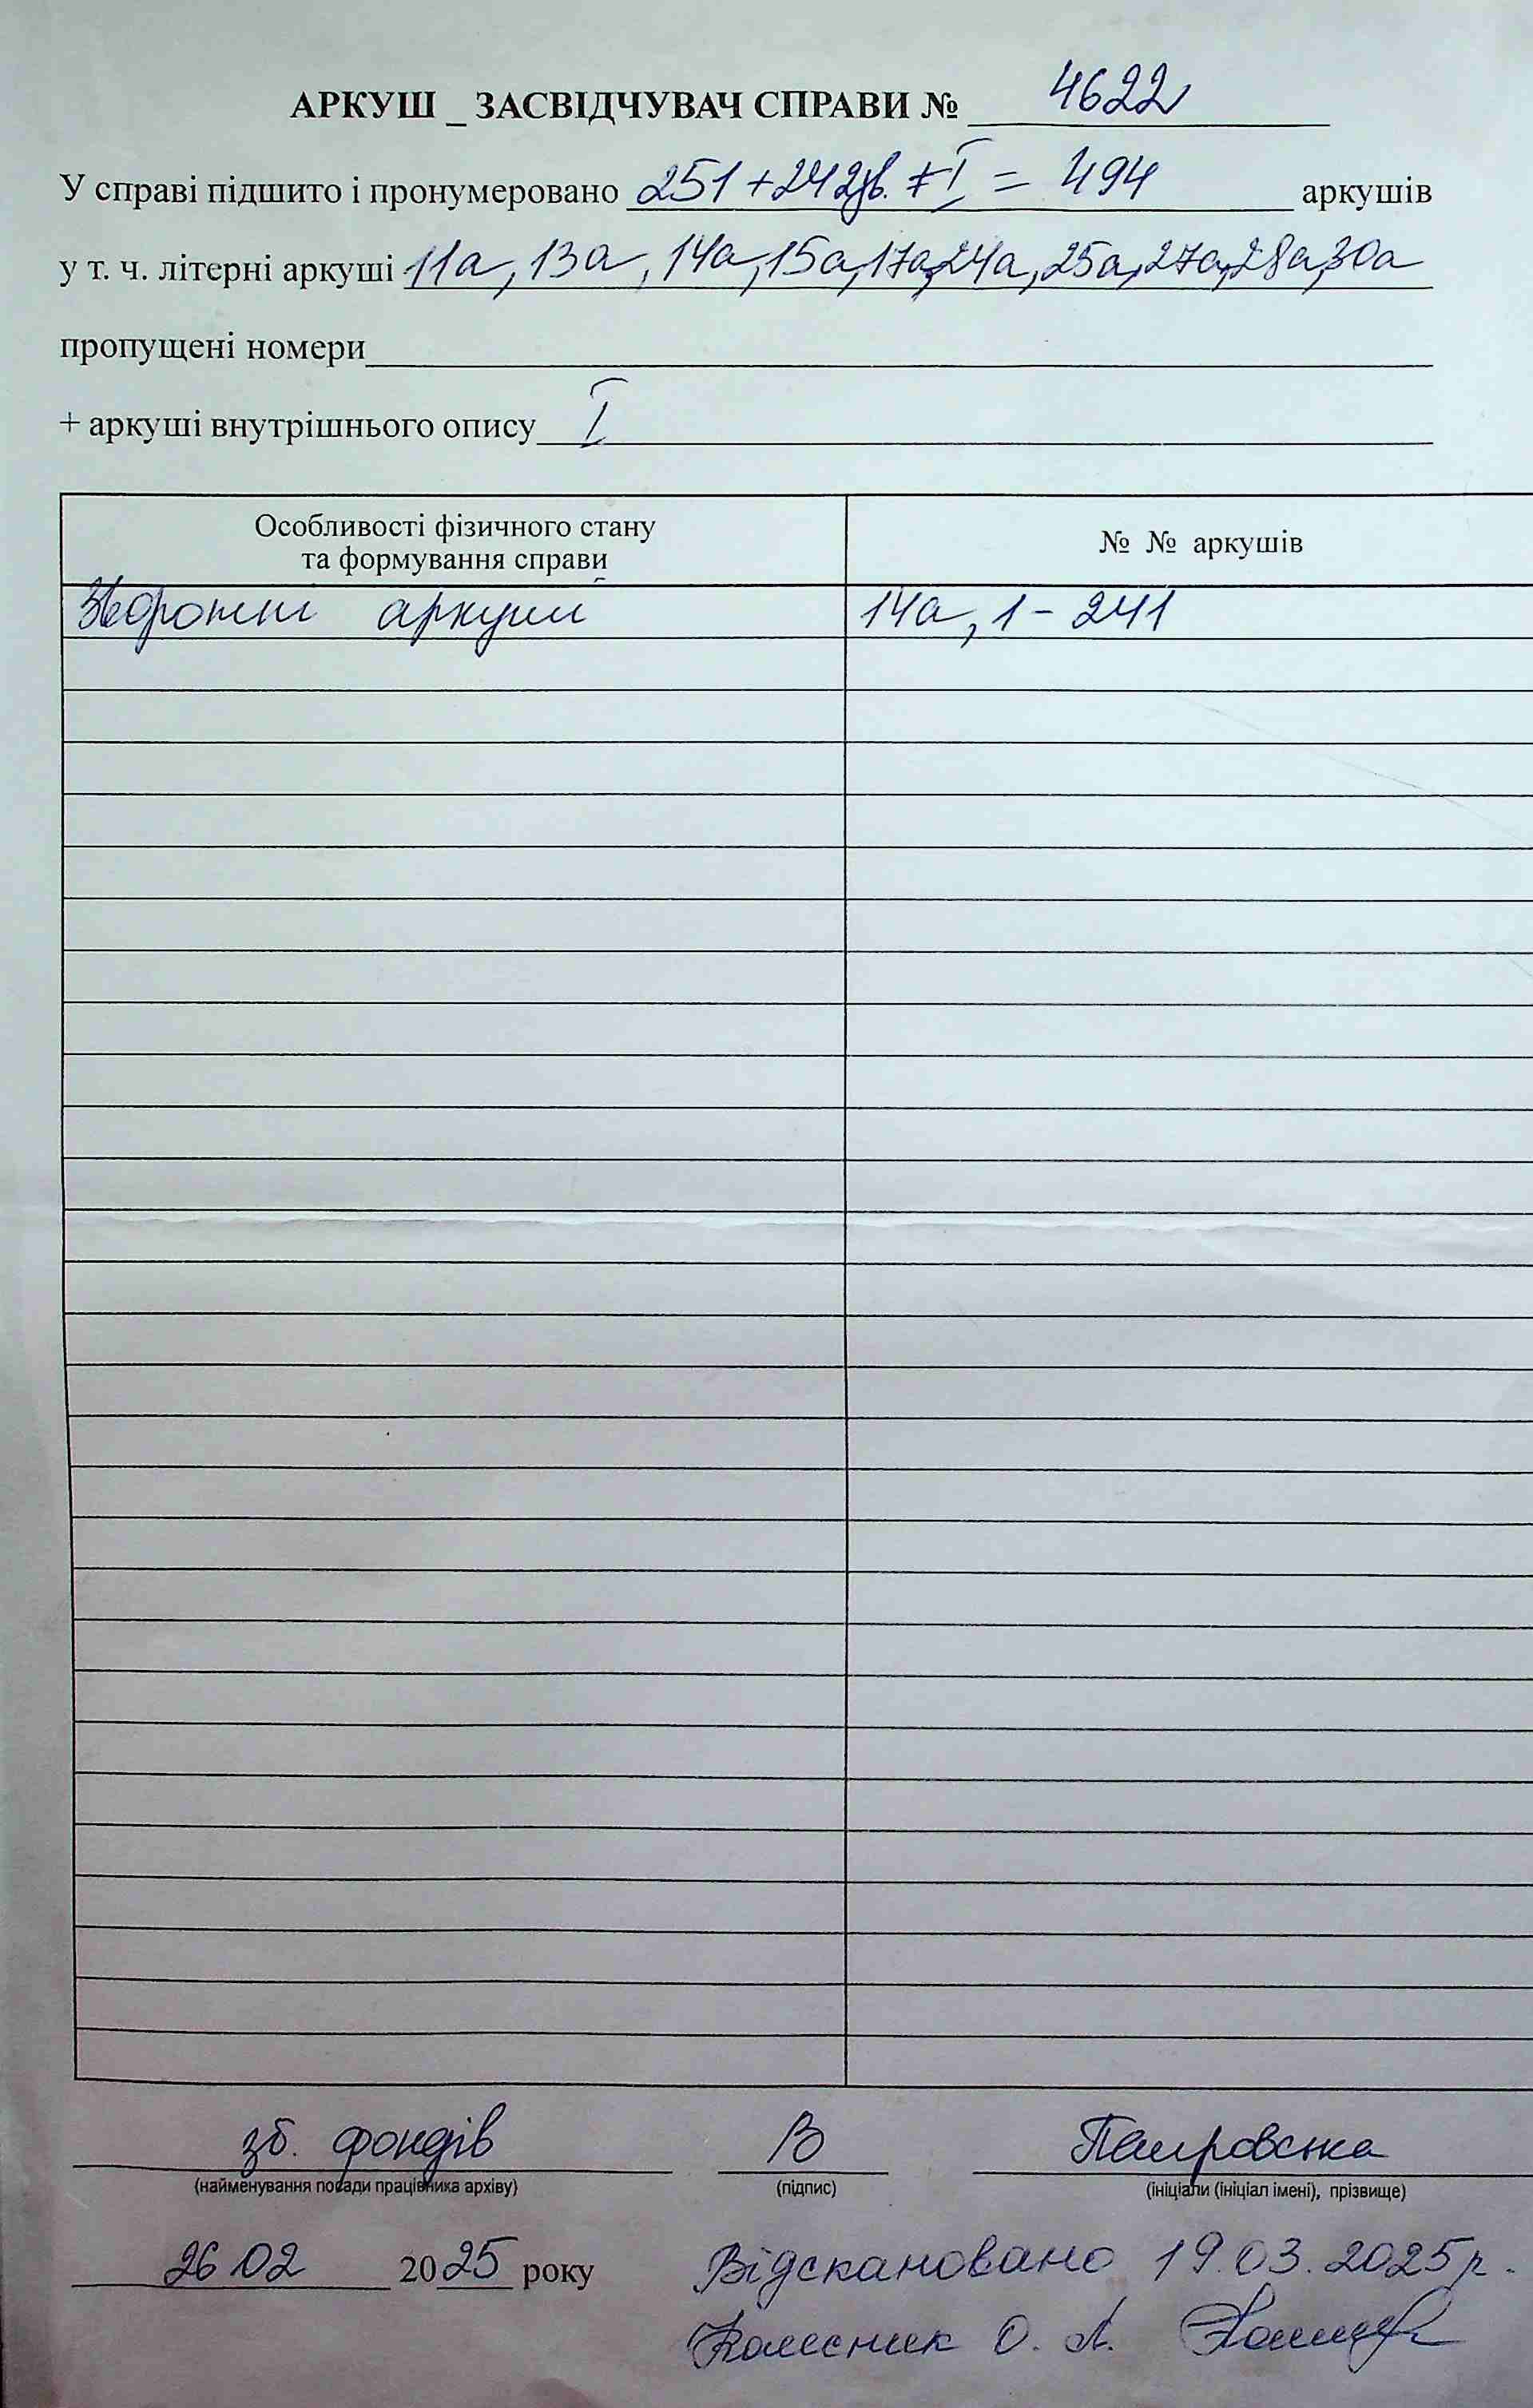 АРКУШ _ ЗАСВІДЧУВАЧ СПРАВИ № 4622
У справі підшито і пронумеровано 251 + 242зв. + I = 494 аркушів
у т. ч. літерні аркуші 11а, 13а, 14а, 15а, 17а, 24а, 25а, 27а, 28а, 30а
пропущені номери
+ аркуші внутрішнього опису I
Особливості фізичного стану
та формування справи
№ № аркушів
Зворотні аркуші 14а, 1 - 241
зб. фондів В
(найменування посади працівника архіву) (підпис) (ініціали (ініціал імені), прізвище)
26 02 2025 року Відскановано 19.03.2025 р.
Колесник О. А.